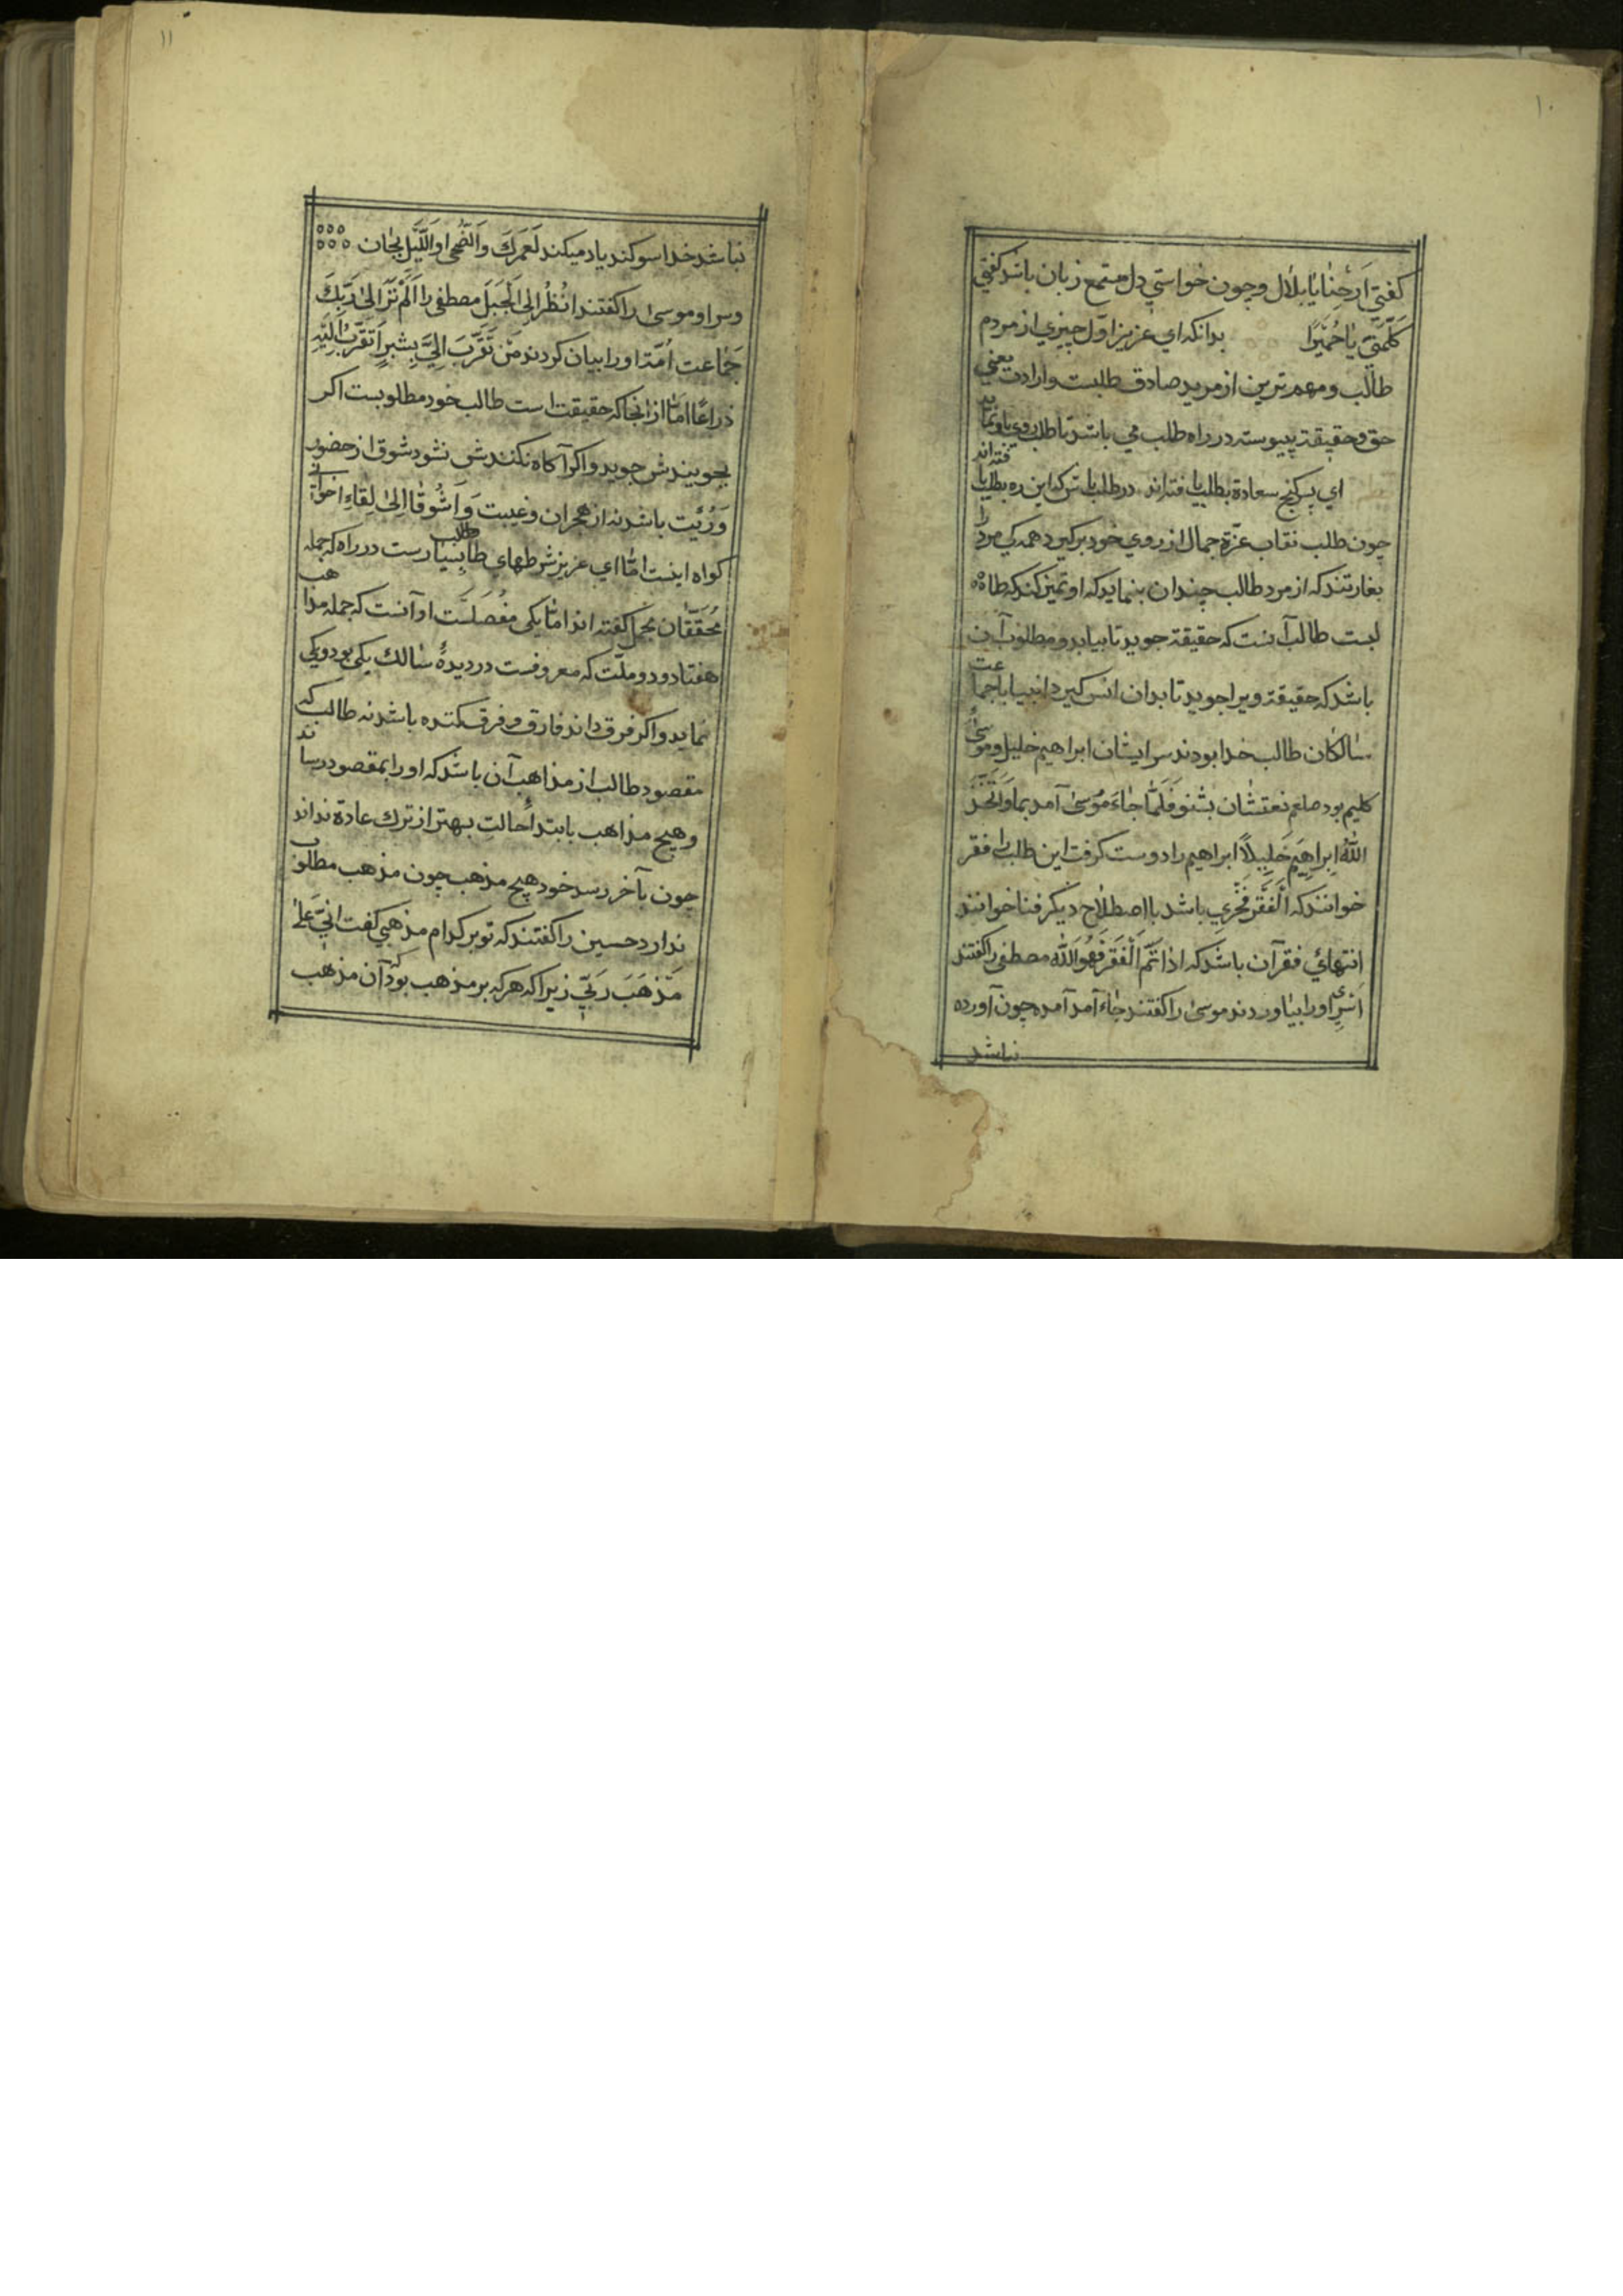 ۱۰
كفتي اَرِحْنٰا يٰا بِلٰال وچون خواستي دل مستمع زبان باشد كفتي
كَلِّمْنِي يٰا حُمَيْرٰا بدانكه اي عزيز اوّل چيزي از مردم
طالب ومهم ترين از مريد صادق طلبست وارادت يعني
حق وحقيقة پيوسته در راه طلب مي باشد تا طلب روي باو نمايد
اي پسر كنج سعادة بطلب يافته اند در طلب باش كه اين ره بطلب يافته اند
چون طلب نقاب عزّة جمال از روي خود بركيرد همه كي مرد را
بغارتند كه از مرد طالب چندان بنمايد كه او تميز كند كه طا
لبست طالب آنست كه حقيقة جويد تا بيابد ومطلوب آن
باشد كه حقيقة ويرا جويد تا بدان انس كيرد انبيا با جماعت
سٰالكان طالب خدا بودند سر ايشان ابراهيم خليل وموسىٰ
كليم بود صلعم نعتشان بشنو فَلَمّٰا جٰاءَ مُوسىٰ آمد بما وَاتَّخَذَ
اللّٰهُ اِبراهِيم خَلِيلاً ابراهيم را دوست كرفت اين طلب را فقر
خوانند كه اَلْفَقْر فَخْري باشد با اصطلاح ديكر فنا خوانند
انتهائي فقر آن باشد كه اذا تَمَّ اَلْفَقر فَهُوَ اللّٰه مصطفى را كفتند
اَسْرىٰ اورا بيٰاوردند موسىٰ را كفتند جٰاءَ آمد آمده چون آورده
نباشد
۱۱
نباشد خدا سوكند ياد ميكند لَعَمرَكَ وَالضُّحى او اللَّيلِ بجٰان
وسر او موسىٰ را كفتند انْظُر اِلى اَلْجَبَلَ مصطفى را اَلَمْ تَرَ اِلىٰ رَبِّكَ
جَمٰاعت اُمّة اورا بيان كردند مَنْ تَقَرَّبَ اِلَيَّ بِشبرٍ اَتَقَرَّبُ اِلَيْهِ
ذراعًا امّٰا از انجا كه حقيقت است طالب خود مطلوبست اكر
بجويندش جويد واكر آكاه نكنندش نشود شوق از حضور
وَرُئيَت باشد نه از هجران وغيبت وَاَشْوُقٰا اِلىٰ لِقٰاءِ اخواني
كواه اينست امّٰا اي عزيز شرطهاي طالب بسيارست در راه كه جمله
مُحَقّقان مجمل كفته اند امّٰا يكى مفُصَلَست او آنست كه جمله مذا هب
هفتاد ودو ملّت كه معروفست در ديدهٔ سٰالك يكى بود ويكي
نمايد واكر فرق داند فارق وفرق كننده باشد نه طالب كه
مقصود طالب از مذاهب آن باشد كه اورا بمقصود رساند
وهيچ مذاهب بابتداءِ حالتِ بهتر از ترك عادة نداند
چون بآخر رسد خود هيچ مذهب چون مذهب مطلوب
ندارد حسين را كفتند كه تو بر كدام مذهبي كفت انيّ عَلىٰ
مَذْهَبَ رَبّي زيراكه هر كه بر مذهب بود كه آن مذهب